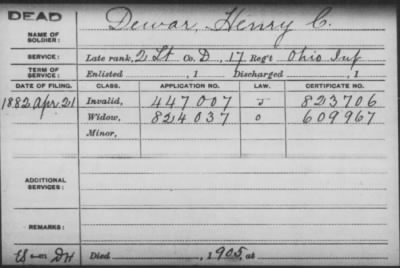 DEAD
NAME OF SOLDIER: Dewar, Henry C.
SERVICE: Late rank, 2 Lt Co. D, 17 Reg't Ohio Inf
TERM OF SERVICE: Enlisted , 1 Discharged , 1
DATE OF FILING. CLASS. APPLICATION NO. LAW. CERTIFICATE NO.
1882 Apr. 21 Invalid, 447007 J 823706
Widow, 824037 O 609967
Minor,
ADDITIONAL SERVICES:
REMARKS:
Died , 1905, at